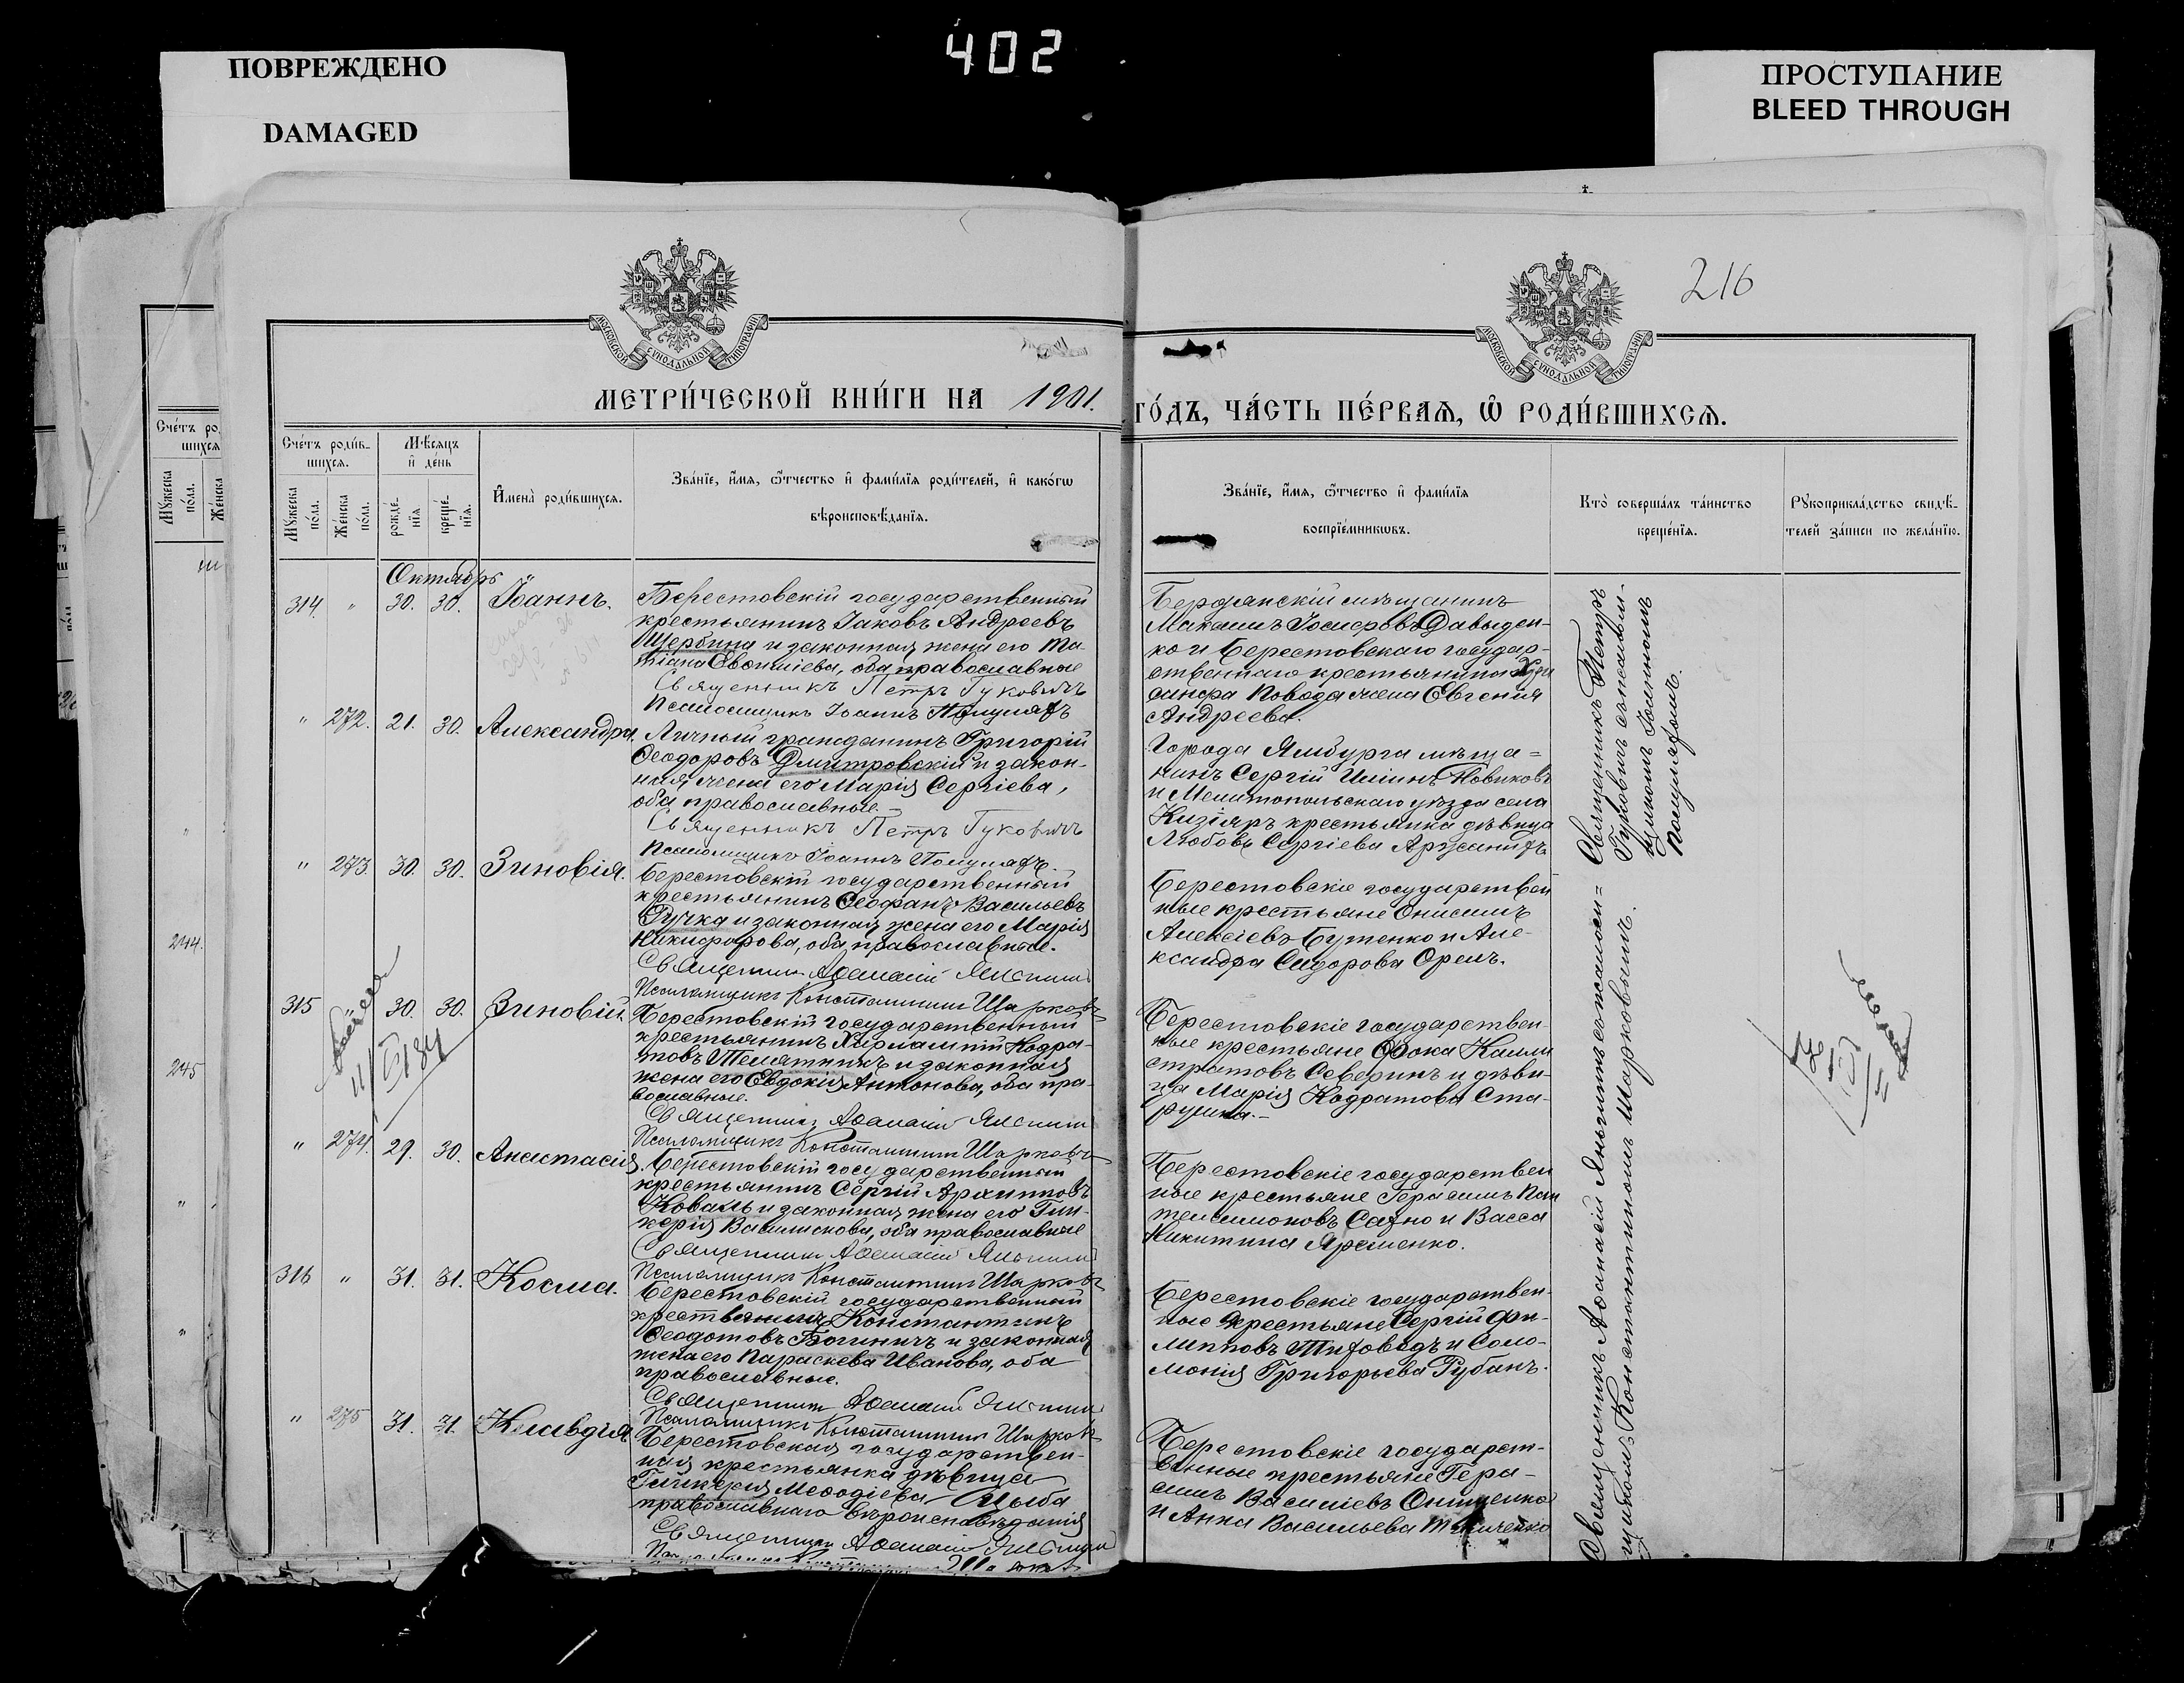 402
ПОВРЕЖДЕНО
DAMAGED
ПРОСТУПАНИЕ
BLEED THROUGH
216
МОСКОВСКОЙ СУНОДАЛЬНОЙ ТИПОГРАФІИ
МОСКОВСКОЙ СУНОДАЛЬНОЙ ТИПОГРАФІИ
МЕТРИ́ЧЕСКОЙ КНИ́ГИ НА 1901.
ГО́ДЪ, ЧА́СТЬ ПЕ́РВАѦ, Ѡ РОДИ́ВШИХСѦ.
Сче́тъ роди́в-
шихсѧ.
Мꙋжеска по́ла.
Же́нска по́ла.
Мѣ́сѧцъ
и де́нь
рожде́-
нїѧ
креще́-
нїѧ.
Имена̀ роди́вшихсѧ.
Зва́нїе, и́мѧ, ѻ́тчество и фами́лїѧ роди́телей, и како́гѡ
вѣроисповѣ́данїѧ.
Зва́нїе, и́мѧ, ѻ́тчество и фами́лїѧ
воспрїе́мникѡвъ.
Кто̀ соверша́лъ та́инство
креще́нїѧ.
Рꙋкоприкла́дство свидѣ́-
телей за́писи по жела́нїю.
Октябрь
314 " 30. 30. Іоаннъ.
Берестовскій государственный
крестьянинъ Іаковъ Андреевъ
Щербина и законная жена его Та-
тіана Евфиміева, оба православные
Священникъ Петръ Гуковичъ
Псаломщикъ Іоаннъ
Бердянскій мѣщанинъ
Максимъ Давыден-
ко и Берестовскаго государ-
ственнаго крестьянина
Повода жена Евгенія
Андреева.
" 272. 21. 30. Александра.
Личный гражданинъ Григорій
Ѳеодоровъ Дмитровскій и закон-
ная жена его Марія Сергіева,
оба православные.
Священникъ Петръ Гуковичъ
Псаломщикъ Іоаннъ
Города Ямбурга мѣща=
нинъ Сергій Новиковъ
и Мелитопольскаго уѣзда села
Кизіяръ крестьянка дѣвица
Любовь Сергіева
" 273. 30. 30. Зиновія.
Берестовскій государственный
крестьянинъ Ѳеофанъ Васильевъ
Ручка и законная жена его Марія
Никифорова, оба православные.
Священникъ Аѳанасій
Псаломщикъ Константинъ Шарковъ
Берестовскіе государствен
ные крестьяне Онисимъ
Алексіевъ Бутенко и Але-
ксандра Сидорова Орелъ.
315 " 30. 30. Зиновій.
Берестовскій государственный
крестьянинъ Харлампій Кодра-
товъ Телятникъ и законная
жена его Евдокія Антонова, оба пра-
вославные.
Священникъ Аѳанасій
Псаломщикъ Константинъ Шарковъ
Берестовскіе государствен-
ные крестьяне Фока Калли
стратовъ Северинъ и дѣви-
ца Марія Кодратова Ста-
" 274. 29. 30. Анастасія.
Берестовскій государственный
крестьянинъ Сергій Архиповъ
Коваль и законная жена его Гли-
керія Василискова, оба православные
Священникъ Аѳанасій
Псаломщикъ Константинъ Шарковъ
Берестовскіе государствен
ные крестьяне Герасимъ Пан
телеимоновъ Сахно и Васса
Никитина Яременко.
316 " 31. 31. Косма.
Берестовскій государственный
крестьянинъ Константинъ
Ѳеодотовъ Богиничъ и законная
жена его Параскева Иванова, оба
православные.
Священникъ Аѳанасій
Псаломщикъ Константинъ Шарковъ
Берестовскіе государствен-
ные крестьяне Сергій Фи-
липповъ Тиховодъ и Соло-
монія Григорьева Рубанъ.
" 275 31. 31. Клавдія.
Берестовская государствен-
ная крестьянка дѣвица
Гликерія Меѳодіева Цыба
православнаго вѣроисповѣданія
Священникъ Аѳанасій
Берестовскіе государст-
венные крестьяне Гера-
симъ Василіевъ Онищенко
и Анна Васильева
Священникъ Петръ
Гуковичъ съ псалом-
щикомъ Іоанномъ
Священникъ Аѳанасій съ псалом=
щикомъ Константиномъ Шарковымъ.
244.
245